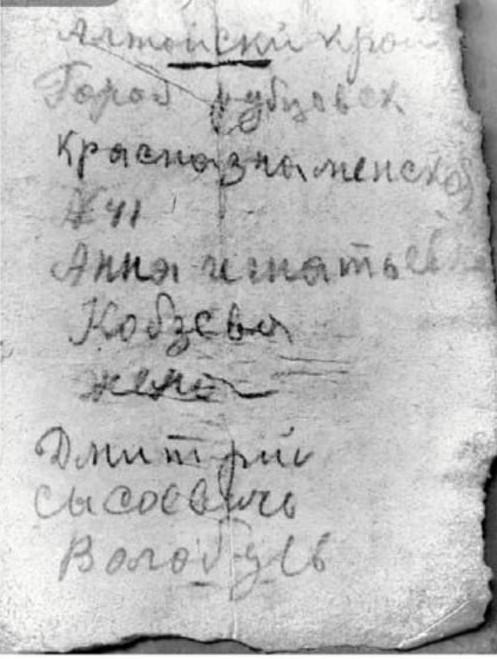 Алтойский край
Город рубцовск
Красназнаменская
№ 41
Анна игнатьевна
Кобзева
жена
Дмитрий
Сысоевичь
Волобуев